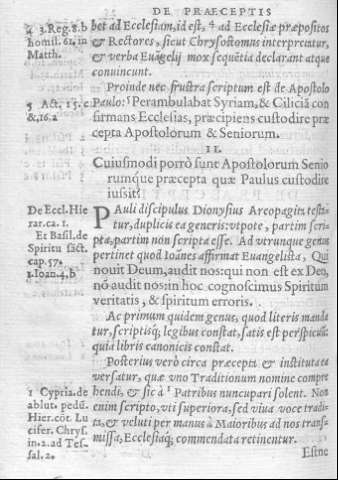 DE PRÆCEPTIS
4 3. Reg. 8. b
homil. 61. in
Matth.
bet ad Ecclesiam, id est, 4 ad Ecclesiæ præpositos
& Rectores, sicut Chrysostomus interpretatur,
& verba Euãgelij mox sequētia declarant atque
conuincunt.
Proinde nec frustra scriptum est de Apostolo
5 Act. 15. c
& 16. a
Paulo: 5 Perambulabat Syriam, & Ciliciã con
firmans Ecclesias, præcipiens custodire præ
cepta Apostolorum & Seniorum.
II.
Cuiusmodi porrò sunt Apostolorum Senio
rumq́ue præcepta quæ Paulus custodire
iussit?
De Eccl. Hie
rar. ca. 1.
Et Basil. de
Spiritu sãct.
cap. 57.
1. Ioan. 4. b
PAuli discipulus Dionysius Areopagita testa-
tur, duplicia ea generis: vtpote, partim scri-
pta, partim non scripta esse. Ad vtrunque genus
pertinet quod Ioãnes affirmat Euangelista, Qui
nouit Deum, audit nos: qui non est ex Deo,
nõ audit nos: in hoc cognoscimus Spiritum
veritatis, & spiritum erroris.
Ac primum quidem genus, quod literis manda
tur, scriptisq́; legibus constat, satis est perspicuū:
quia libris canonicis constat.
Posterius verò circa præcepta & instituta ea
versatur, quæ vno Traditionum nomine compre
1 Cypria. de
ablut. pedū.
Hier. cōt. Lu
cifer. Chrys.
in. 2. ad Tes-
sal. 2.
hendi, & sic à 1 Patribus nuncupari solent. Non
enim scripto, vti superiora, sed viua voce tradi-
ta, & veluti per manus à Maioribus ad nos trans-
missa, Ecclesiæq́; commendata retinentur.
Estne